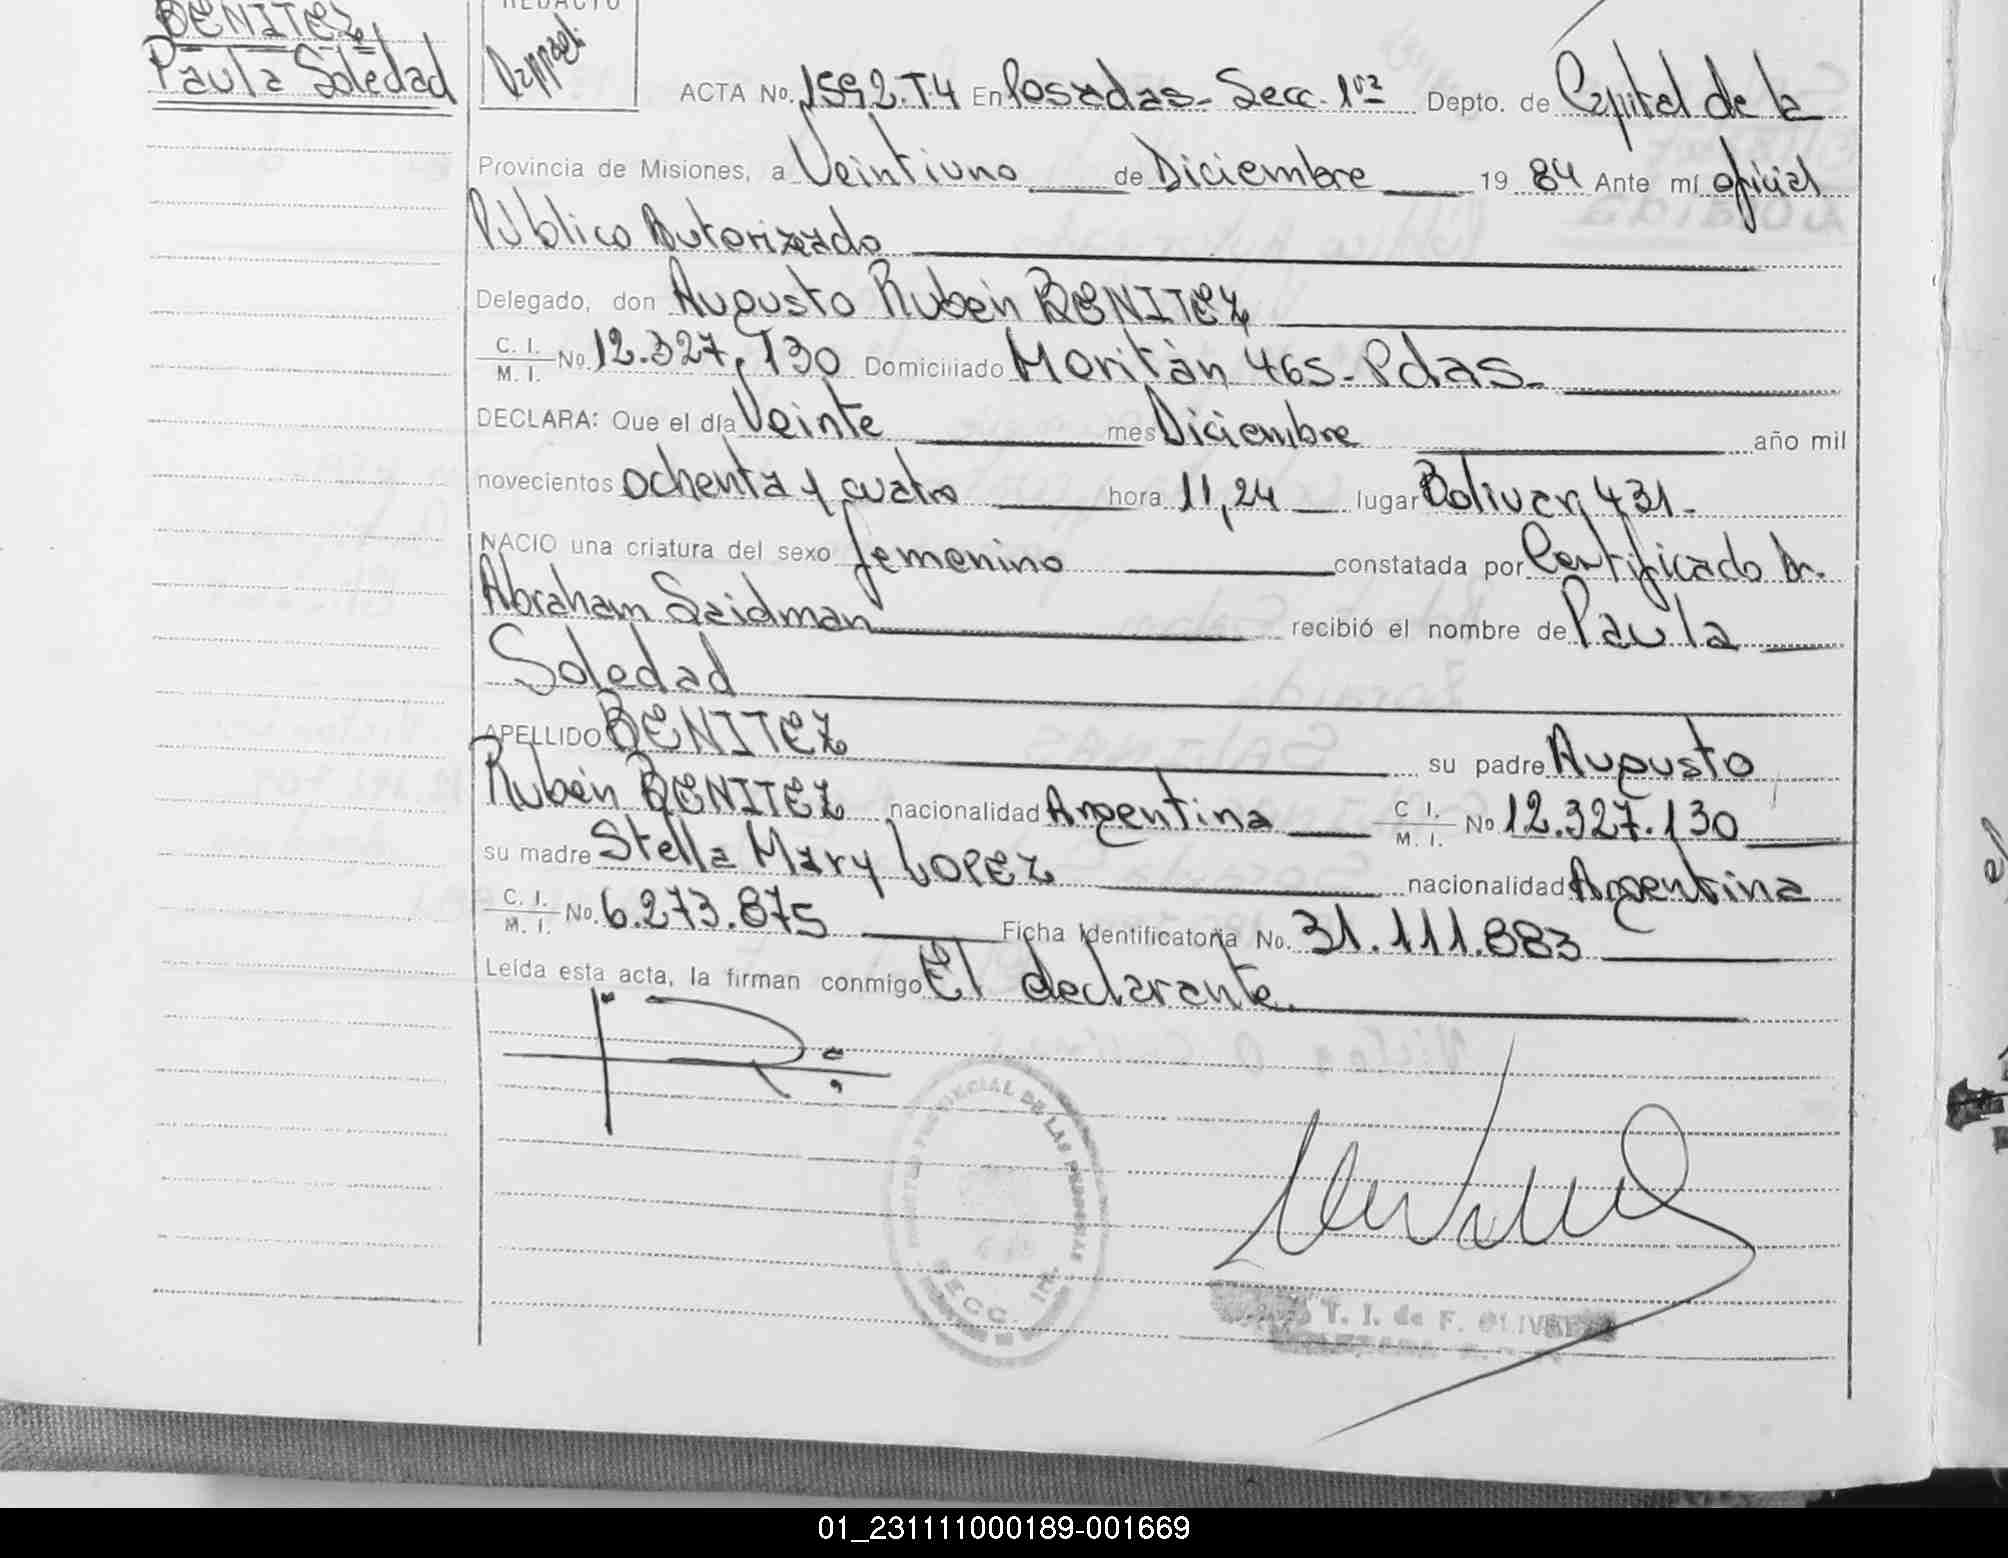 BENITEZ,
Paula Soledad
REDACTO
ACTA No. 1592.T4 En Posadas- Secc. 1ra Depto. de Capital de la
Provincia de Misiones, a Veintiuno de Diciembre 19 84 Ante mí oficial
Público Autorizado
Delegado, don Augusto Rubén BENITEZ,
C. I. / M. I. No. 12.327.130 Domiciliado Moritán 465- Pdas-
DECLARA: Que el día Veinte mes Diciembre año mil
novecientos ochenta y cuatro hora 11,24 lugar Bolivar, 431-
NACIO una criatura del sexo femenino constatada por Certificado Dr.
Abraham Saidman recibió el nombre de Paula
Soledad
APELLIDO BENITEZ su padre Augusto
Rubén BENITEZ nacionalidad Argentina C I. / M. I. No 12.327.130
su madre Stella Mary LOPEZ nacionalidad Argentina
C. I. / M. I. No. 6.273.875 Ficha Identificatoria No. 31.111.883
Leída esta acta, la firman conmigo El declarante.
PROVINCIAL DE LAS PERSONAS
SECC. 1ra.
T. I. de F. OLIVERA
01_231111000189-001669